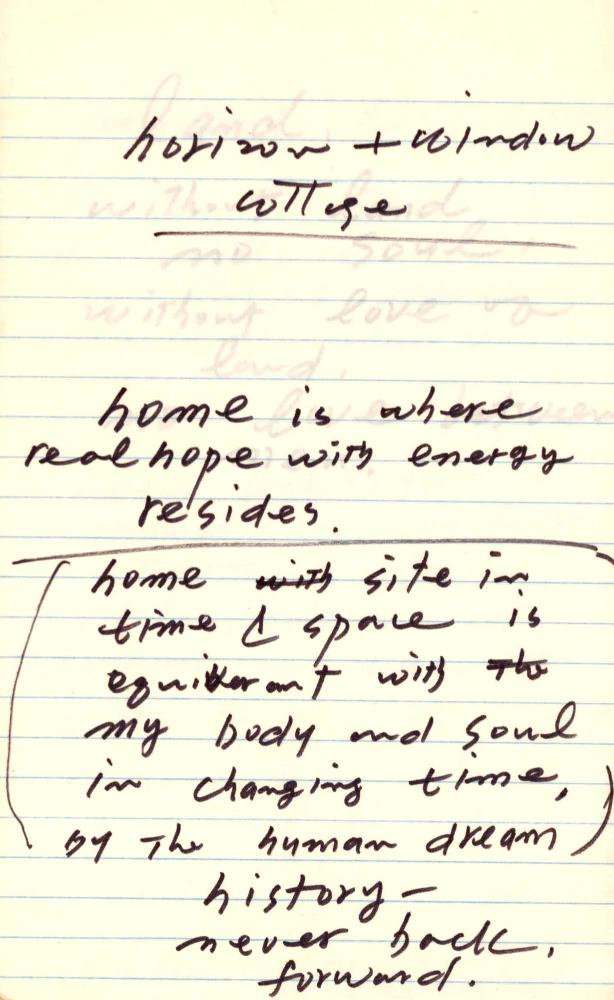 horizon + window
cottage
home is where
real hope with energy
resides.
(home with site in
time & space is
with the
my body and soul
in changing time,
by the human dream)
history —
never back,
forward.